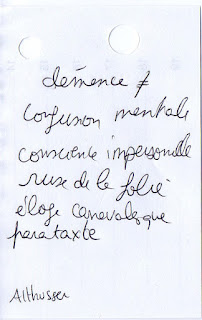 démence ≠
confusion mentale
consciente impersonnelle
ruse de la folie
éloge carnavalesque
parataxte
Althusser